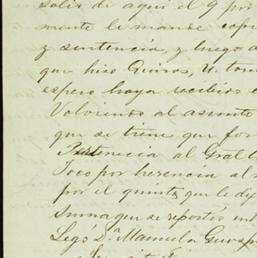 Salir de aqui el 9 por
mente le mande copi
y sentencia, y luego a
que hizo Quiros, U. tom
espero haya recibido e
Volviendo al asunto
que se tiene que for
Pertenecia al Gral
Toco por herencia al
por el quinto que le dej
Suma que se repartió ent
Legó Dª Manuela